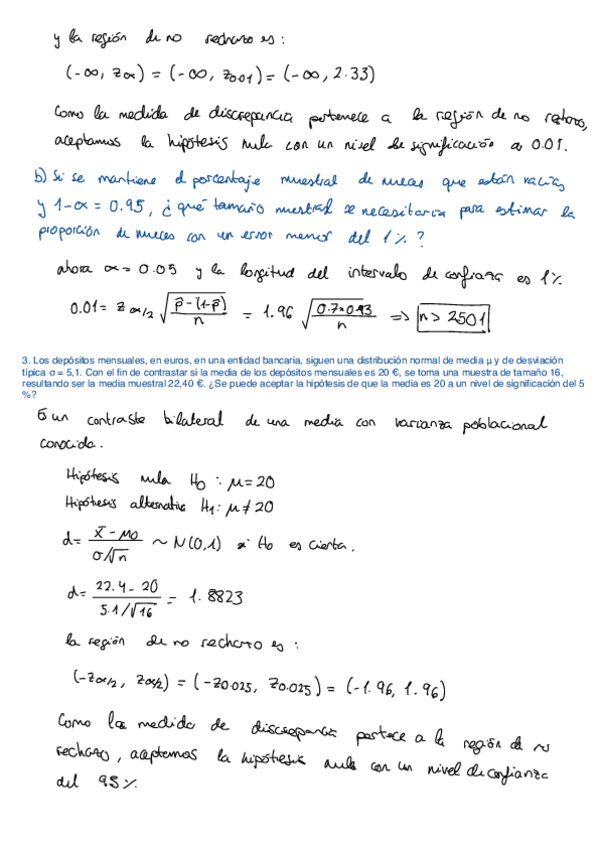 y la región de no rechazo es:
(-∞, zα) = (-∞, z0.01) = (-∞, 2.33)
Como la medida de discrepancia pertenece a la región de no rechazo,
aceptamos la hipótesis nula con un nivel de significación α 0.01.
b) Si se mantiene el porcentaje muestral de nueces que están vacías
y 1-α = 0.95, ¿qué tamaño muestral se necesitaría para estimar la
proporción de nueces con un error menor del 1%?
ahora α = 0.05 y la longitud del intervalo de confianza es 1%
0.01 = zα/2 √(p̄-(1-p̄)/n) = 1.96 √(/n) => n > 2501
3. Los depósitos mensuales, en euros, en una entidad bancaria, siguen una distribución normal de media µ y de desviación
típica σ = 5,1. Con el fin de contrastar si la media de los depósitos mensuales es 20 €, se toma una muestra de tamaño 16,
resultando ser la media muestral 22,40 €. ¿Se puede aceptar la hipótesis de que la media es 20 a un nivel de significación del 5
%?
Es un contraste bilateral de una media con varianza poblacional
conocida.
Hipótesis nula H0 : µ = 20
Hipótesis alternativa H1: µ ≠ 20
d = (x̄ - µ0)/(σ/√n) ~ N(0,1) si H0 es cierta.
d = (22.4 - 20)/(5.1/√16) = 1.8823
la región de no rechazo es :
(-zα/2, zα/2) = (-z0.025, z0.025) = (-1.96, 1.96)
Como la medida de discrepancia a la región de no
rechazo, aceptamos la hipótesis nula con un nivel de confianza
del 95%.